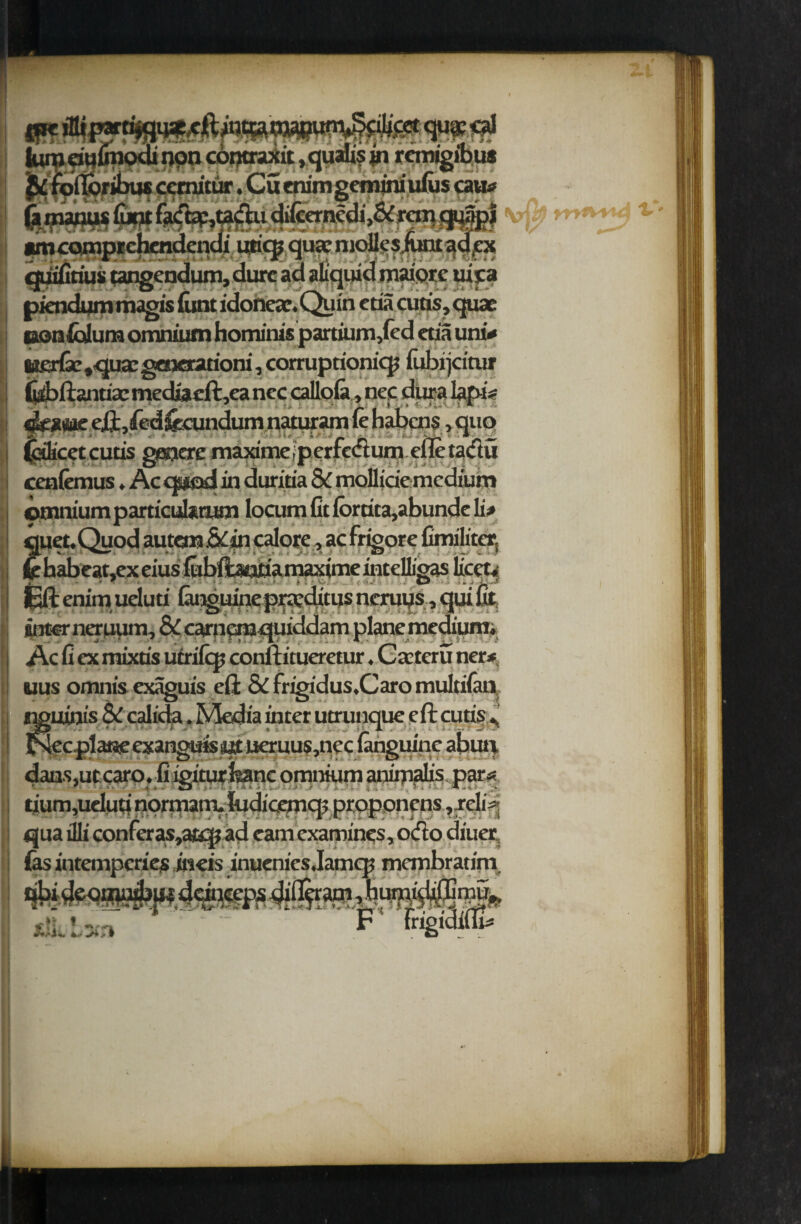 illi parti, quæ, est intra manum, Scilicet quæ cal
lum eiusmodi non contraxit, qualis in remigibus
& fossoribus cernitur. Cū enim gemini usus cau-
sa manus sunt factæ, tactu discernēdi, & rem quāpi
am comprehendendi utiqȝ quæ molles, sunt ad ex
quisitius tangendum, dure ad aliquid maiore ui ca
piendum magis sunt idoneæ. Quin etiā cutis, quæ
non solum omnium hominis partium, sed etiā uni-
uersæ, quæ generationi, corruptioniqȝ subijcitur
substantiæ media est, ea nec callosa, nec dura lapi-
deaue est, sed secundum naturam se habens, quo
scilicet cutis genere maxime perfectum esse tactū
censemus. Ac quod in duritia & mollicie medium
omnium particularum locum sit sortita, abunde li-
quet. Quod autem & in calore, ac frigore similiter,
se habeat, ex eius substantia maxime intelligas licet,
Est enim ueluti sanguine præditus neruus, qui sit,
inter neruum, & carnem quiddam plane medium,
Ac si ex mixtis utrisqȝ constitueretur. Cæterū ner-
uus omnis exāguis est & frigidus. Caro multisan
nguinis & calida. Media inter utrunque est cutis,
Nec plane exanguis ut neruus, nec sanguine abun
dans, ut caro. si igitur hanc omnium animalis par-
tium, ueluti normam. Iudicemqȝ proponens, reli-
qua illi conferas, atqȝ ad eam examines, octo diuer
sas intemperies in eis inuenies. Iamqȝ membratim
ubi de omnibus deinceps disseram, humidissimū,
F frigidissi-
21